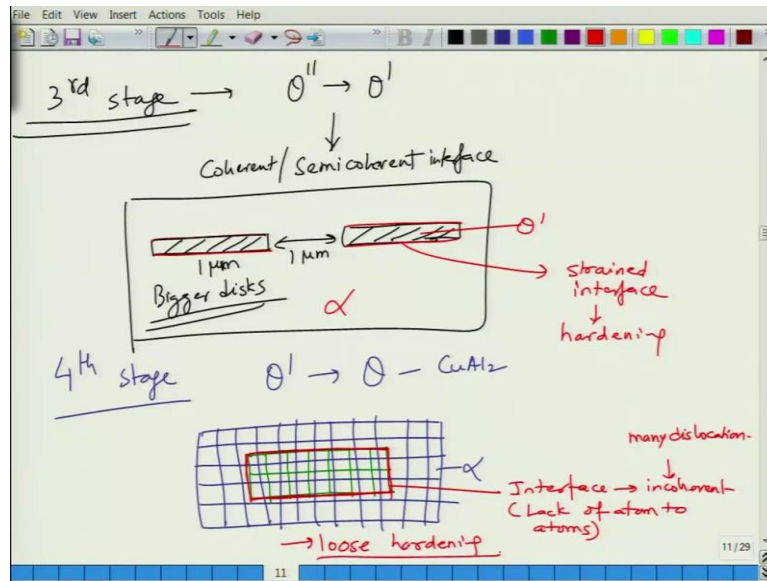 File Edit View Insert Actions Tools Help
3rd stage → θ'' → θ'
Coherent/Semicoherent inteface
θ'
1 μm
1 μm
Bigger disks
α
strained
interface
hardening
4th stage θ' → θ - CuAl2
many dislocation-
α
Interface → incoherent
(Lack of atom to
atoms)
→ loose hardening
11/29
11